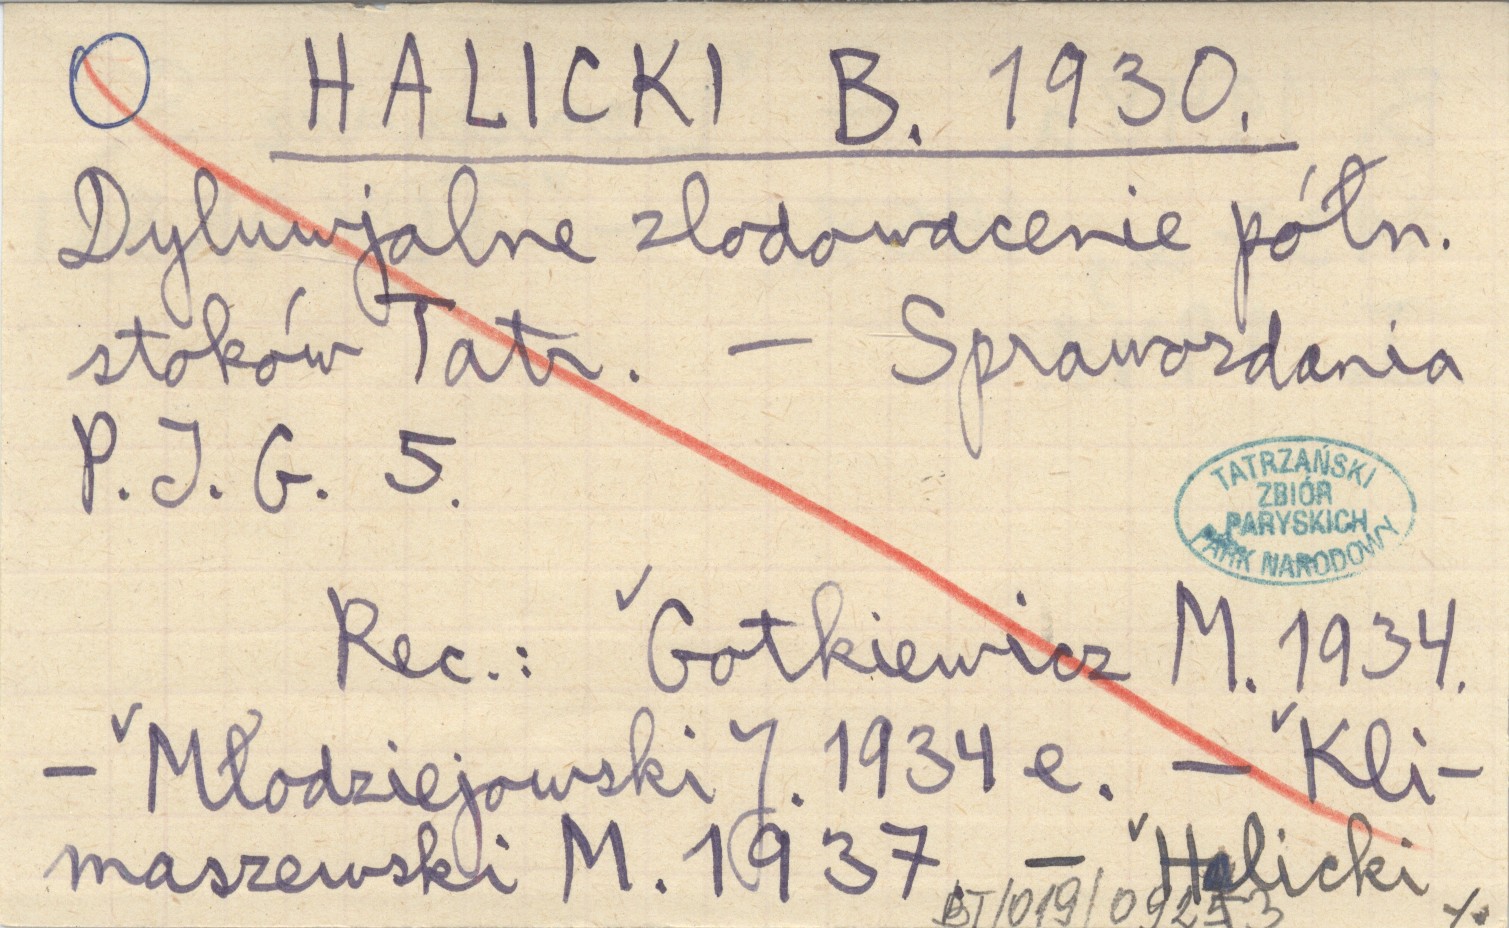 HALICKI B. 1930.
Dyluwjalne zlodowacenie półn.
stoków Tatr. — Sprawozdania
P.I.G. 5.
TATRZAŃSKI
ZBIÓR
PARYSKICH
PARK NARODOWY
Rec.: ˇGotkiewicz M. 1934.
— ˇMłodziejowski J. 1934 e. — ˇKli-
maszewski M. 1937. — ˇHalicki
BT/019/09253 ·/.